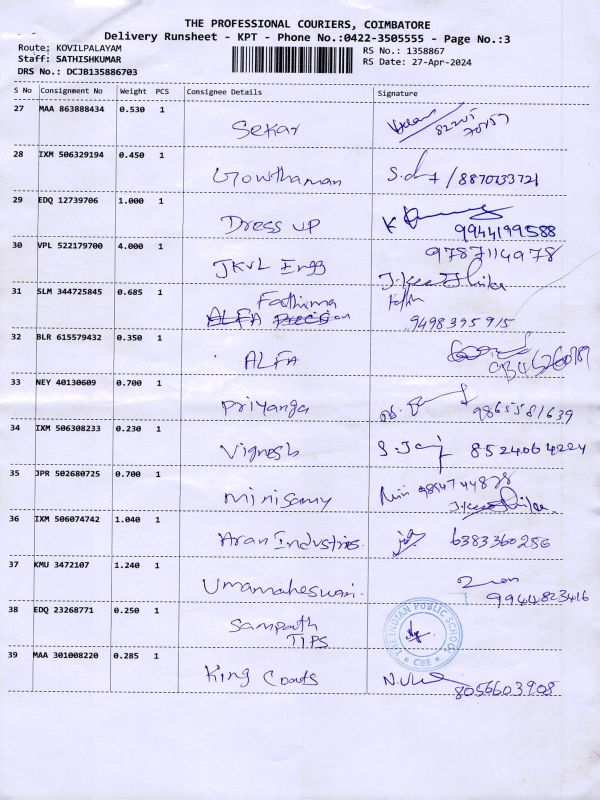 THE PROFESSIONAL COURIERS, COIMBATORE
Delivery Runsheet - KPT - Phone No.:0422-3505555 - Page No.:3
Route: KOVILPALAYAM RS No.: 1358867
Staff: SATHISHKUMAR RS Date: 27-Apr-2024
DRS No.: DCJB135886703
S No Consignment No Weight PCS Consignee Details Signature
27 MAA 863888434 0.530 1
Sekar
28 IXM 506329194 0.450 1
Gowthaman
29 EDQ 12739706 1.000 1
Dress up 9944199588
30 VPL 522179700 4.000 1 9787114978
JKVL Engg
31 SLM 344725845 0.685 1
Fathima
ALFA 9498395915
32 BLR 615579432 0.350 1
ALFA
33 NEY 40130609 0.700 1
Priyanga 9865581639
34 IXM 506308233 0.230 1
Vignesh 8524064224
35 JPR 502680725 0.700 1
Minisamy
36 IXM 506074742 1.040 1
Aran Industries. 6383360256
37 KMU 3472107 1.240 1
Umamaheswari. 9944823416
38 EDQ 23268771 0.250 1
Sampath
TIPS
INDIAN PUBLIC SCHOOL
CBE
39 MAA 301008220 0.285 1
King Coats 8056603908